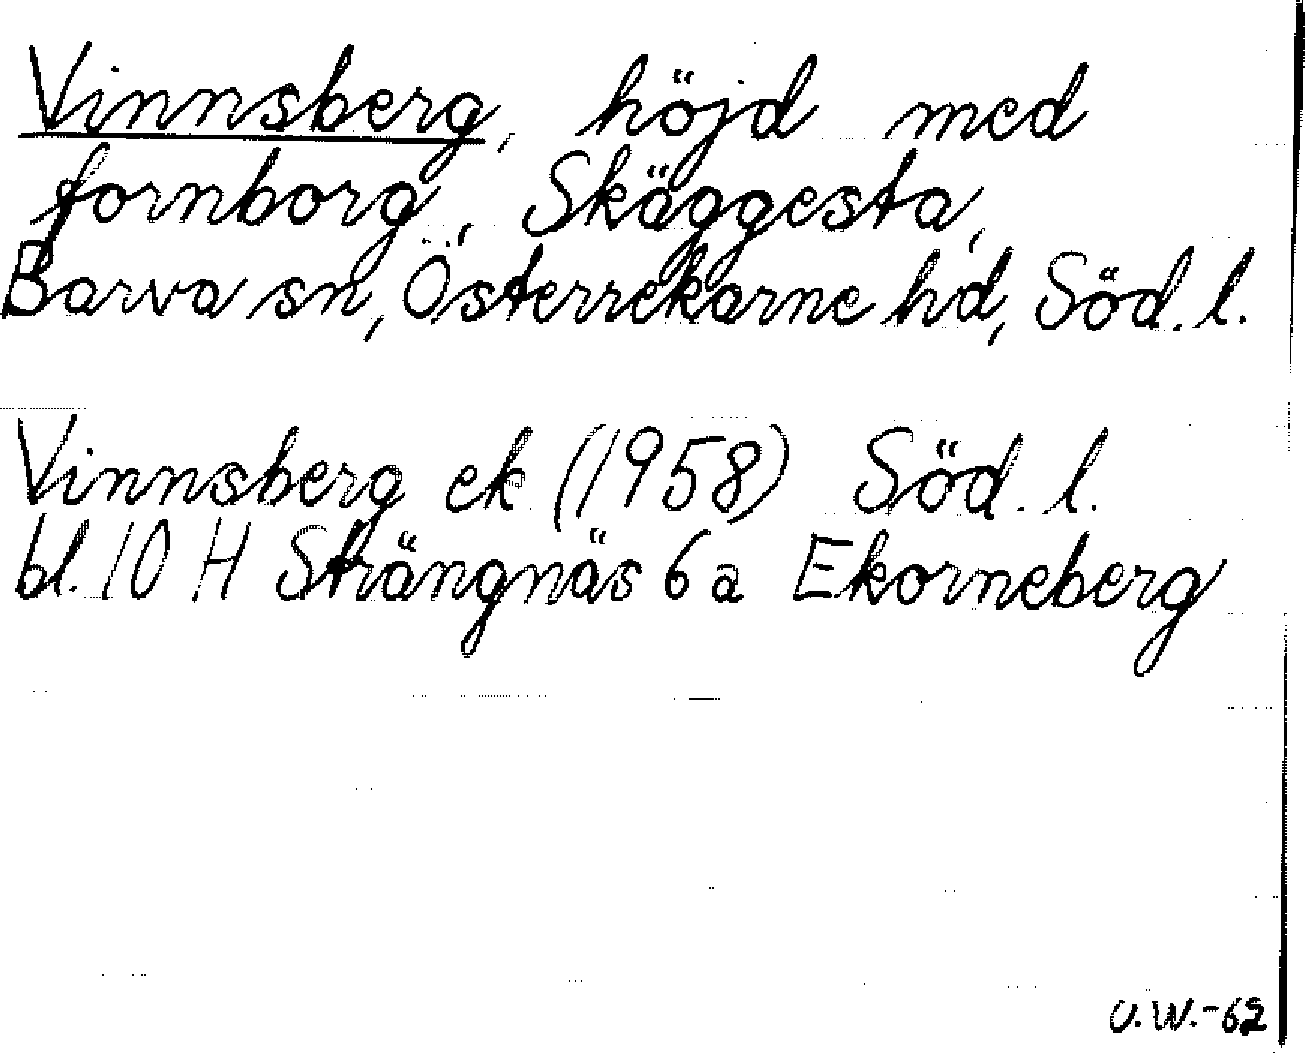 Vinnsberg, höjd med
fornborg, Skäggesta,
Barva sn, Österrekarne hd, Söd. l.
Vinnsberg ek (1958) Söd. l.
bl. 10 H Strängnäs 6 a Ekorneberg
U.W.-62